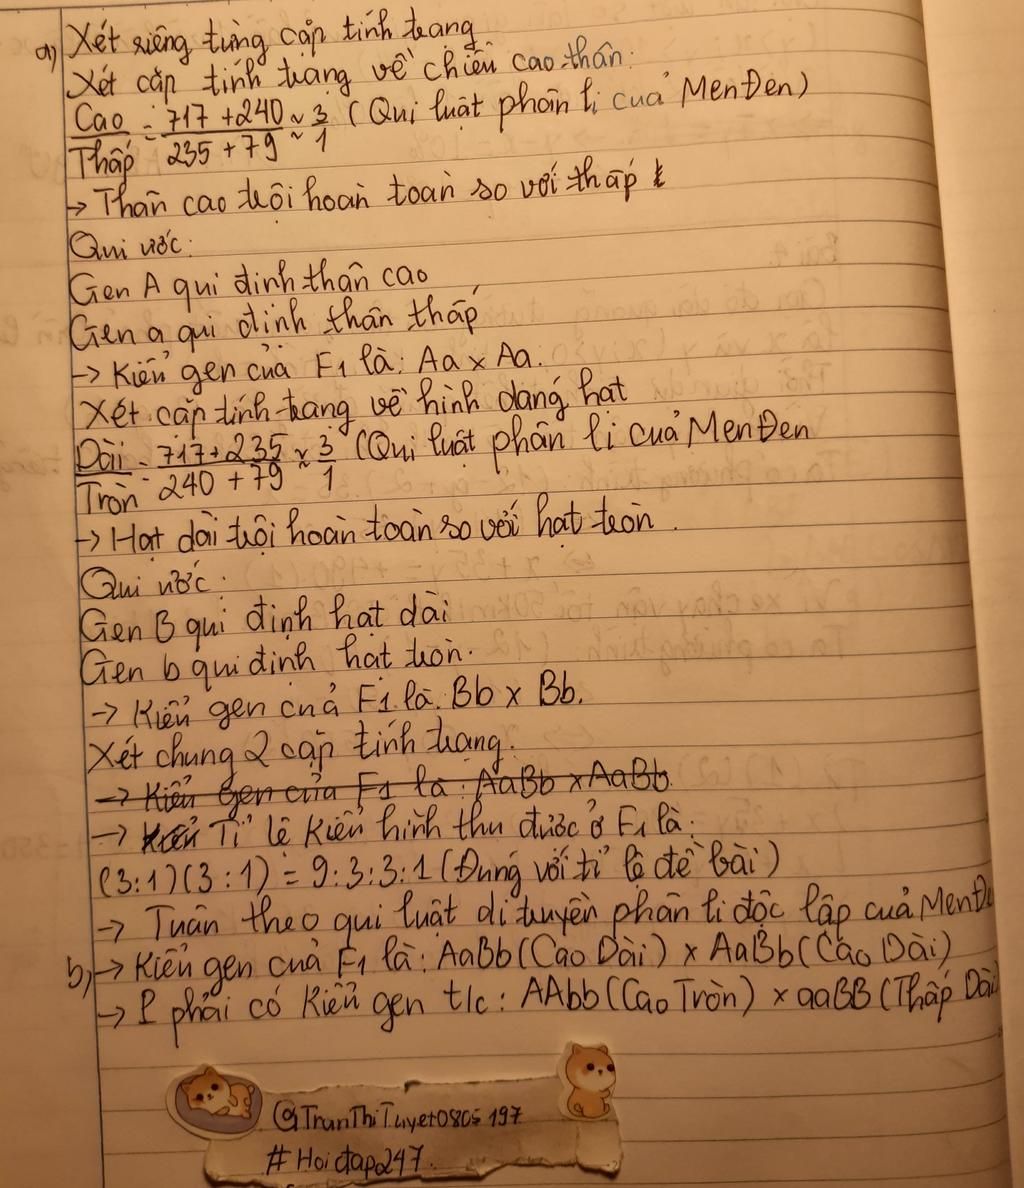 a) Xét riêng từng cặp tính trạng
Xét cặp tính trạng về chiều cao thân:
Cao/Thấp = (717 + 240)/(235 + 79) ≈ 3/1 (Qui luật phân li cuả MenĐen)
→ Thân cao trội hoàn toàn so với thấp
Qui ước:
Gen A qui định thân cao
Gen a qui định thân thấp
→ Kiểu gen của F1 là: Aa x Aa.
Xét cặp tính trạng về hình dạng hạt
Dài/Tròn = (717 + 235)/(240 + 79) ≈ 3/1 (Qui luật phân li cuả MenĐen
→ Hạt dài trội hoàn toàn so với hạt tròn.
Qui ước:
Gen B qui định hạt dài
Gen b qui định hạt tròn.
→ Kiểu gen cuả F1 là: Bb x Bb.
Xét chung 2 cặp tính trạng.
→ Kiểu gen của F1 là: AaBb x AaBb.
→ Kiểu Tỉ lệ kiểu hình thu được ở F1 là:
(3:1)(3:1) = 9:3:3:1 (Đúng với tỉ lệ đề bài)
→ Tuân theo qui luật di truyền phân li độc lập cuả MenĐe
b) → Kiểu gen cuả F1 là: AaBb (Cao Dài) x AaBb (Cao Dài)
→ P phải có kiểu gen t/c: AAbb (Cao Tròn) x aaBB (Thấp Dài)
@TranThiTuyet0805197
#Hoidap247.